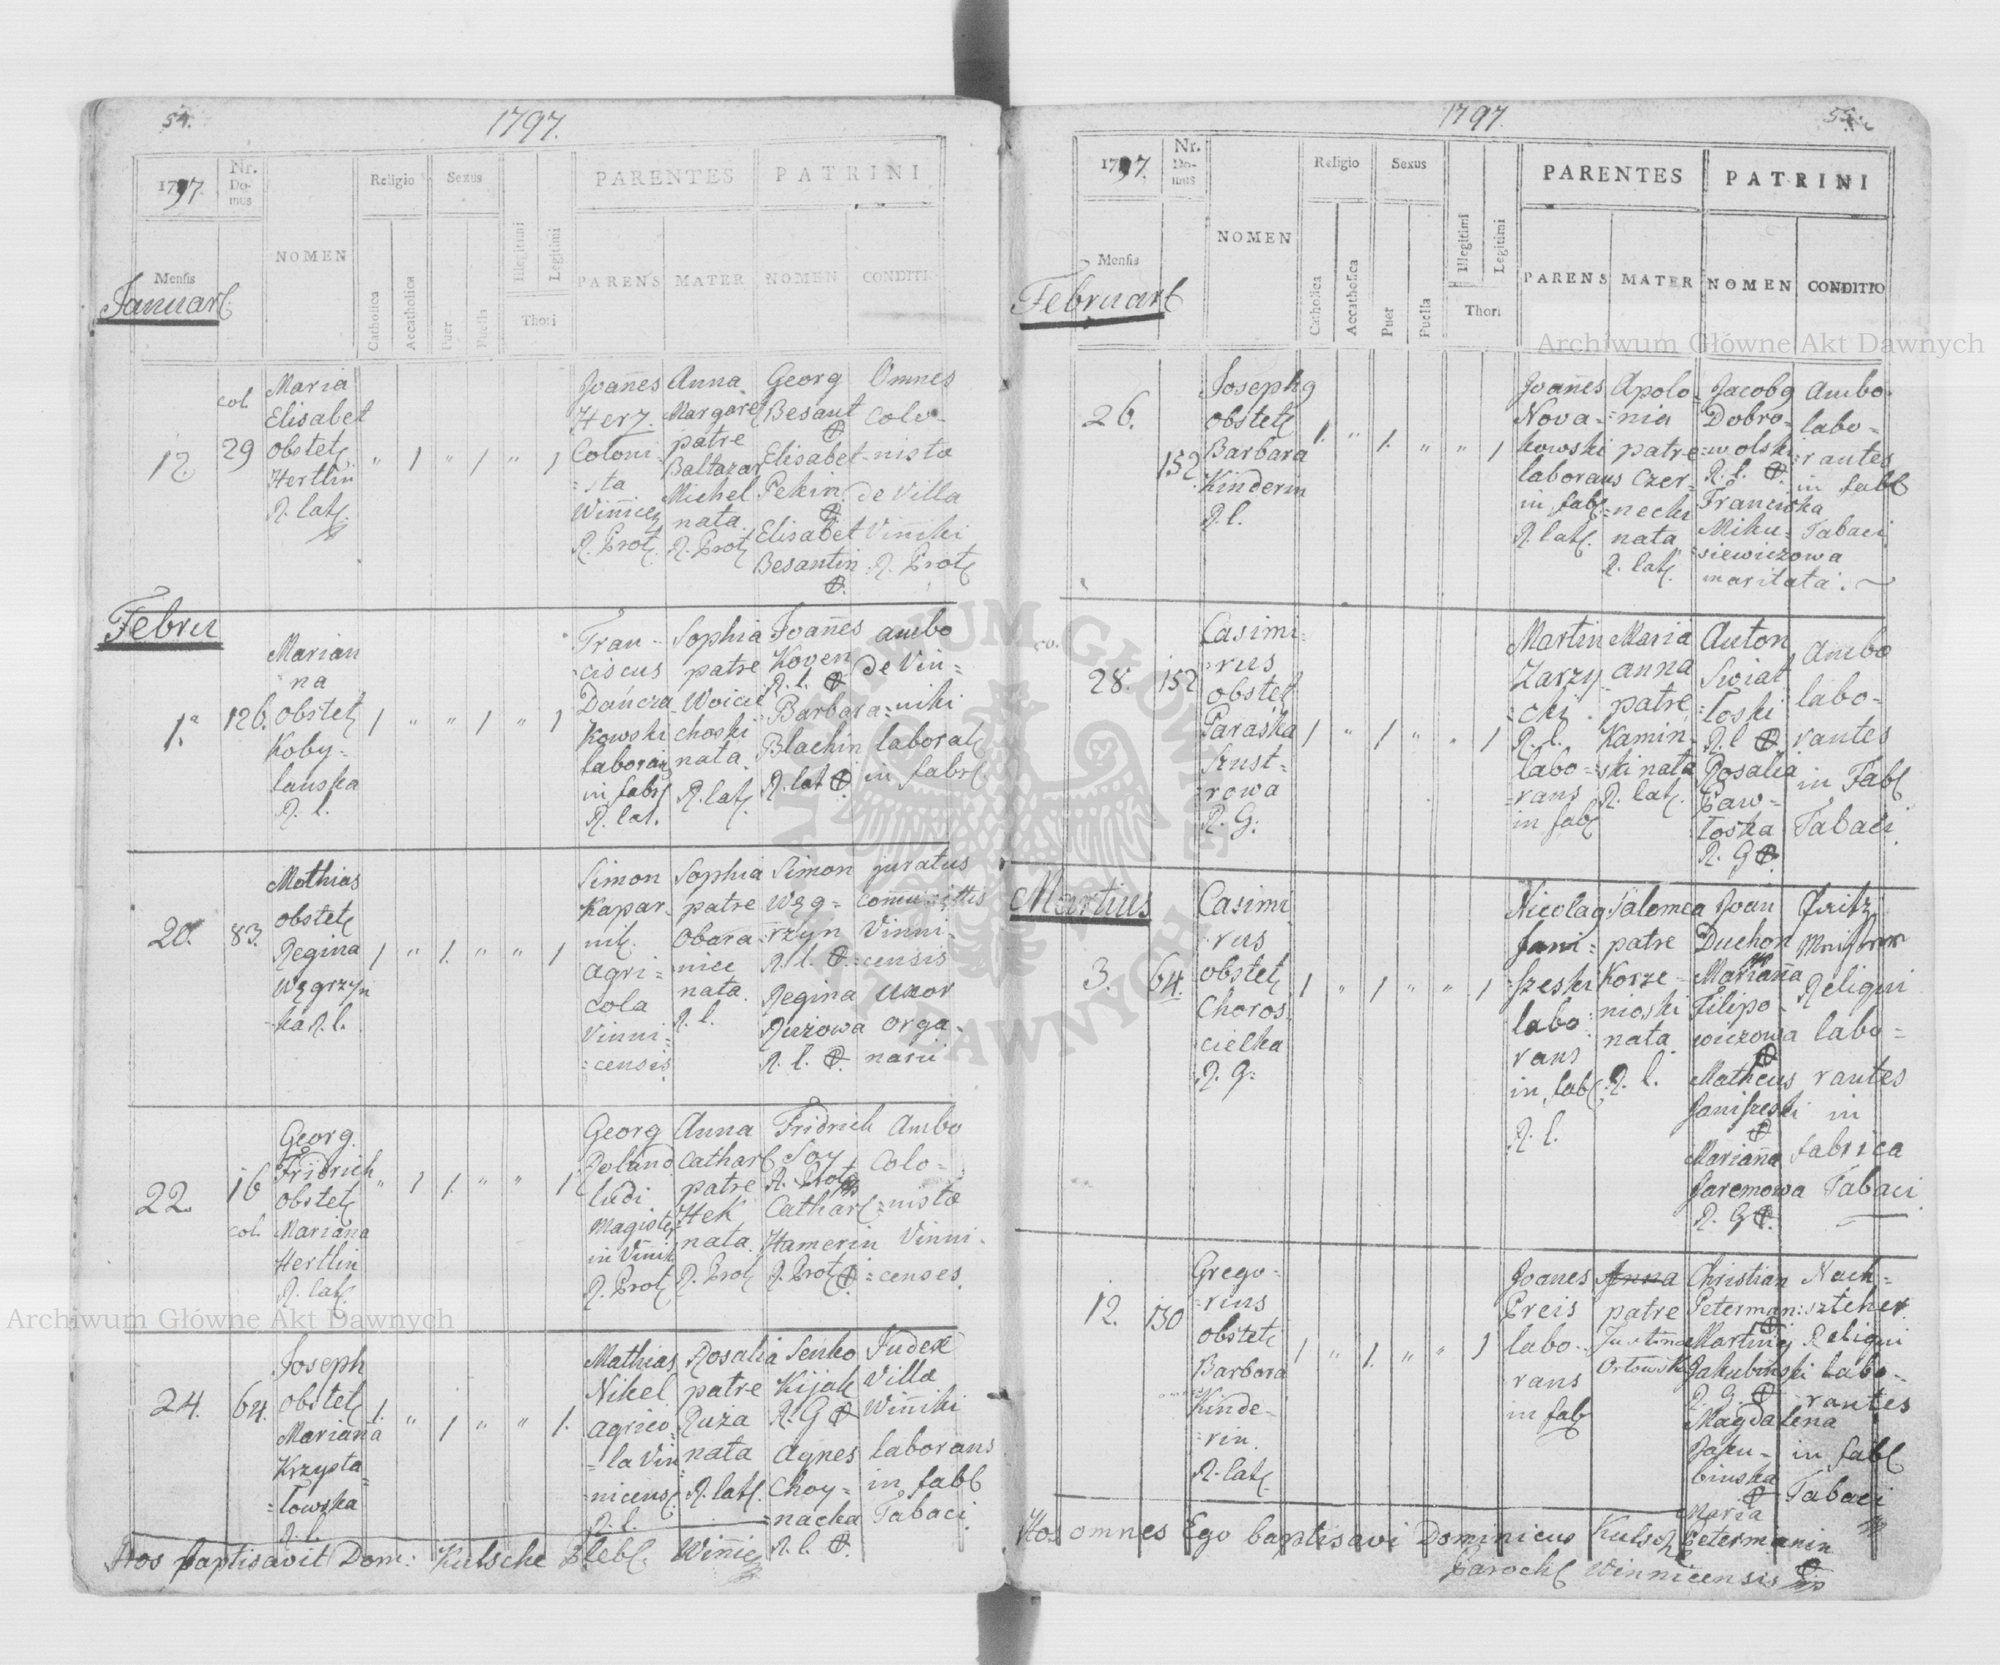 54.
1797.
1797.
Nr. Do-mus
NOMEN
Religio
Sexus
PARENTES
PATRINI
Mensis
Catholica
Accatholica
Puer
Puella
Illegitimi
Legitimi
Thori
PARENS
MATER
NOMEN
CONDITI
Januar
12.
col.
29
Maria
Elisabet
obstet
Hertlin
R. lat.
" 1 " 1 " 1
Joañes
Herz.
Coloni
=sta
Wiñicz
R. Prot.
Anna
Margaret
patre
Baltazar
Michel
nata.
R. Prot
Georg
Besant
Elisabet
Pekin.
Elisabet
Besantin
Omnes
Colo-
nistæ
de Villa
Viñiki
R. Prot
Febru
1ª
126.
Marian
na
obstet
Koby-
lanska
R. l.
1 " " 1 " 1
Fran-
ciscus
Dańcza
Kowski
laborans
in fabr
R. lat.
Sophia
patre
Woicie
choski
nata.
R. lat.
Joañes
Koven
R. l.
Barbara
Blachin
R. lat
ambo
de Vin=
=niki
laborat
in fabr
20.
83.
Mathias
obstet
Regina
Węgrzyn
ka R. l.
1 " 1. " " 1
Simon
Kapar-
nik.
agri=
cola
Vinni=
=censis
Sophia
patre
Obara
nice
nata.
R. l.
Simon
Węg=
=rzyn
R. l.
Regina
Ruzowa
R. l.
juratus
Vinni-
=censis
Uxor
orga-
narii
22.
16
col.
Georg.
Fridrich
obstet
Mariana
Hertlin
R. lat.
" 1 1. " " 1
Georg
Roland
ludi
Magister
in Viñik
R. Prot
Anna
Cathar
patre
Hek
nata.
R. Prot
Fridrich
Soy
R. Prot
Cathar
Hamerin
R. Prot
Ambo
Colo-
=nistæ
Vinni-
=censes.
24.
64.
Joseph
obstet
Mariana
Krzysta=
=lowska
R. l.
1. " 1 " " 1.
Mathias
Nikel
agrico
=la Vin
nicens
R. l.
Rosalia
patre
Ruza
nata
R. lat.
Senko
Kijak
R. G
Agnes
Choy=
=nacka
R. l.
Judex
Villæ
Wiñiki
laborans
in fabr
Tabaci.
Hos baptisavit Dom: Kutsche Pleb. Wiñicz
1797.
55.
1797.
Nr. Do-mus
NOMEN
Religio
Sexus
PARENTES
PATRINI
Mensis
Catholica
Accatholica
Puer
Puella
Illegitimi
Legitimi
Thori
PARENS
MATER
NOMEN
CONDITIO
Februar
26.
152
Joseph9
obstet
Barbara
Kinderin
R. l.
1. " 1. " " 1
Joañes
Nova-
kowski
laborans
in fab
R. lat.
Apolo
=nia
patre
Czer-
=necki
nata
R. lat.
Jacob9
Dobro-
=wolski
R. l.
Franciska
Miku-
siewiczowa
maritata.
Ambo
labo-
rantes
in fab
Tabaci
28.
152
Casimi=
=rus
obstet
Paraska
Szust=
=rowa
R. G:
1 " 1 " " 1
Martin
Zarzy-
cki.
R. l.
labo-
rans
in fab
Maria
anna
patre
Kamin-
ski nata
R. lat.
Anton
Swiat
=loski
R. l
Rosalia
Paw-
loska
R. G
Ambo
labo-
rantes
in Fab
Tabaci.
Martius
3.
64.
Casimi
rus
obstet
Choros
cielka
R. G:
1 " 1 " " 1
Nicola9
Jani-
=szeski
labo
rans
in fab
R. l.
Salomea
patre
Korze-
nioski
nata
R. l.
Joan
Duchon
Mariaña
Filipo-
wiczowa
Matheus
Janiszeski
Mariaña
Jaremowa
R. G
Religui
labo-
rantes
in
fabrica
Tabaci
12.
130
Grego-
=rius
obstet
Barbara
Kinde-
=rin.
R. lat.
1 " 1. " " 1
Joanes
Preis
labo-
rans
in fab
Anna
patre
Justina
Orlowski
Christian
Peterman:
Martin9
Jakubinski
R. G.
Magdalena
Jaku-
binska
Maria
Petermanin
Nach-
szteher
Religui
labo-
rantes
in fab
Tabaci
Hos omnes Ego baptisavi Dominicus Kutsch
Paroch Winnicensis
Archiwum Główne Akt Dawnych
Archiwum Główne Akt Dawnych
ARCHIWUM GŁÓWNE AKT DAWNYCH